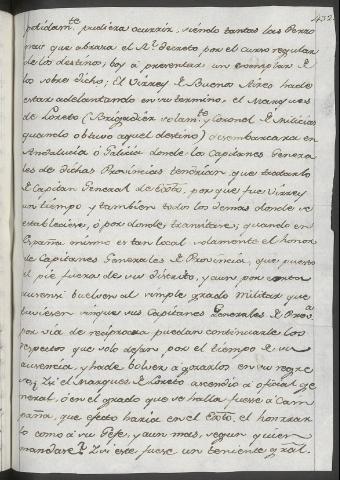 432
pudiera ocurrir, siendo tantas las Perso
nas que abraza el Rl. decreto por el curso regular
de los destinos; voy á presentar un exemplar de
lo sobre dicho; El Virrey de Buenos Aires ha de
estar adelantando en su termino, el Marques
de Loreto (Brigadier solamte. y Coronel de Milicias
quando obtuvo aquel destino) desembarcara en
Andalucia ó Galicia donde los Capitanes Genera
les de dichas Provincias tendrian que tratarlo
de Capitan General de Exto. porque fue Virrey
un tiempo y tambien todos los demas donde se
estableciese, ó por donde transitare, quando en
España mismo es tan local solamente el honor
de Capitanes Generales de Provincia, que puesto
el pie fuera de su distrito, y aun por corta
ausensia buelven al simple grado militar que
tuviesen sin que sus Capitanes Generales de Prova.
por via de reciproca puedan continuarle los
respectos que solo dejan por el tiempo de su
ausencia, y ha de bolver á gozarlos en su regre
so; Si el Marques de Loreto ascendio á oficial ge
neral, ó en el grado que se halla fuese á Cam
paña, que efecto haria en el Exto. el honrrar
lo como á su Gefe, y aun mas, segun quien
mandase? Si este, fuese un teniente gral.